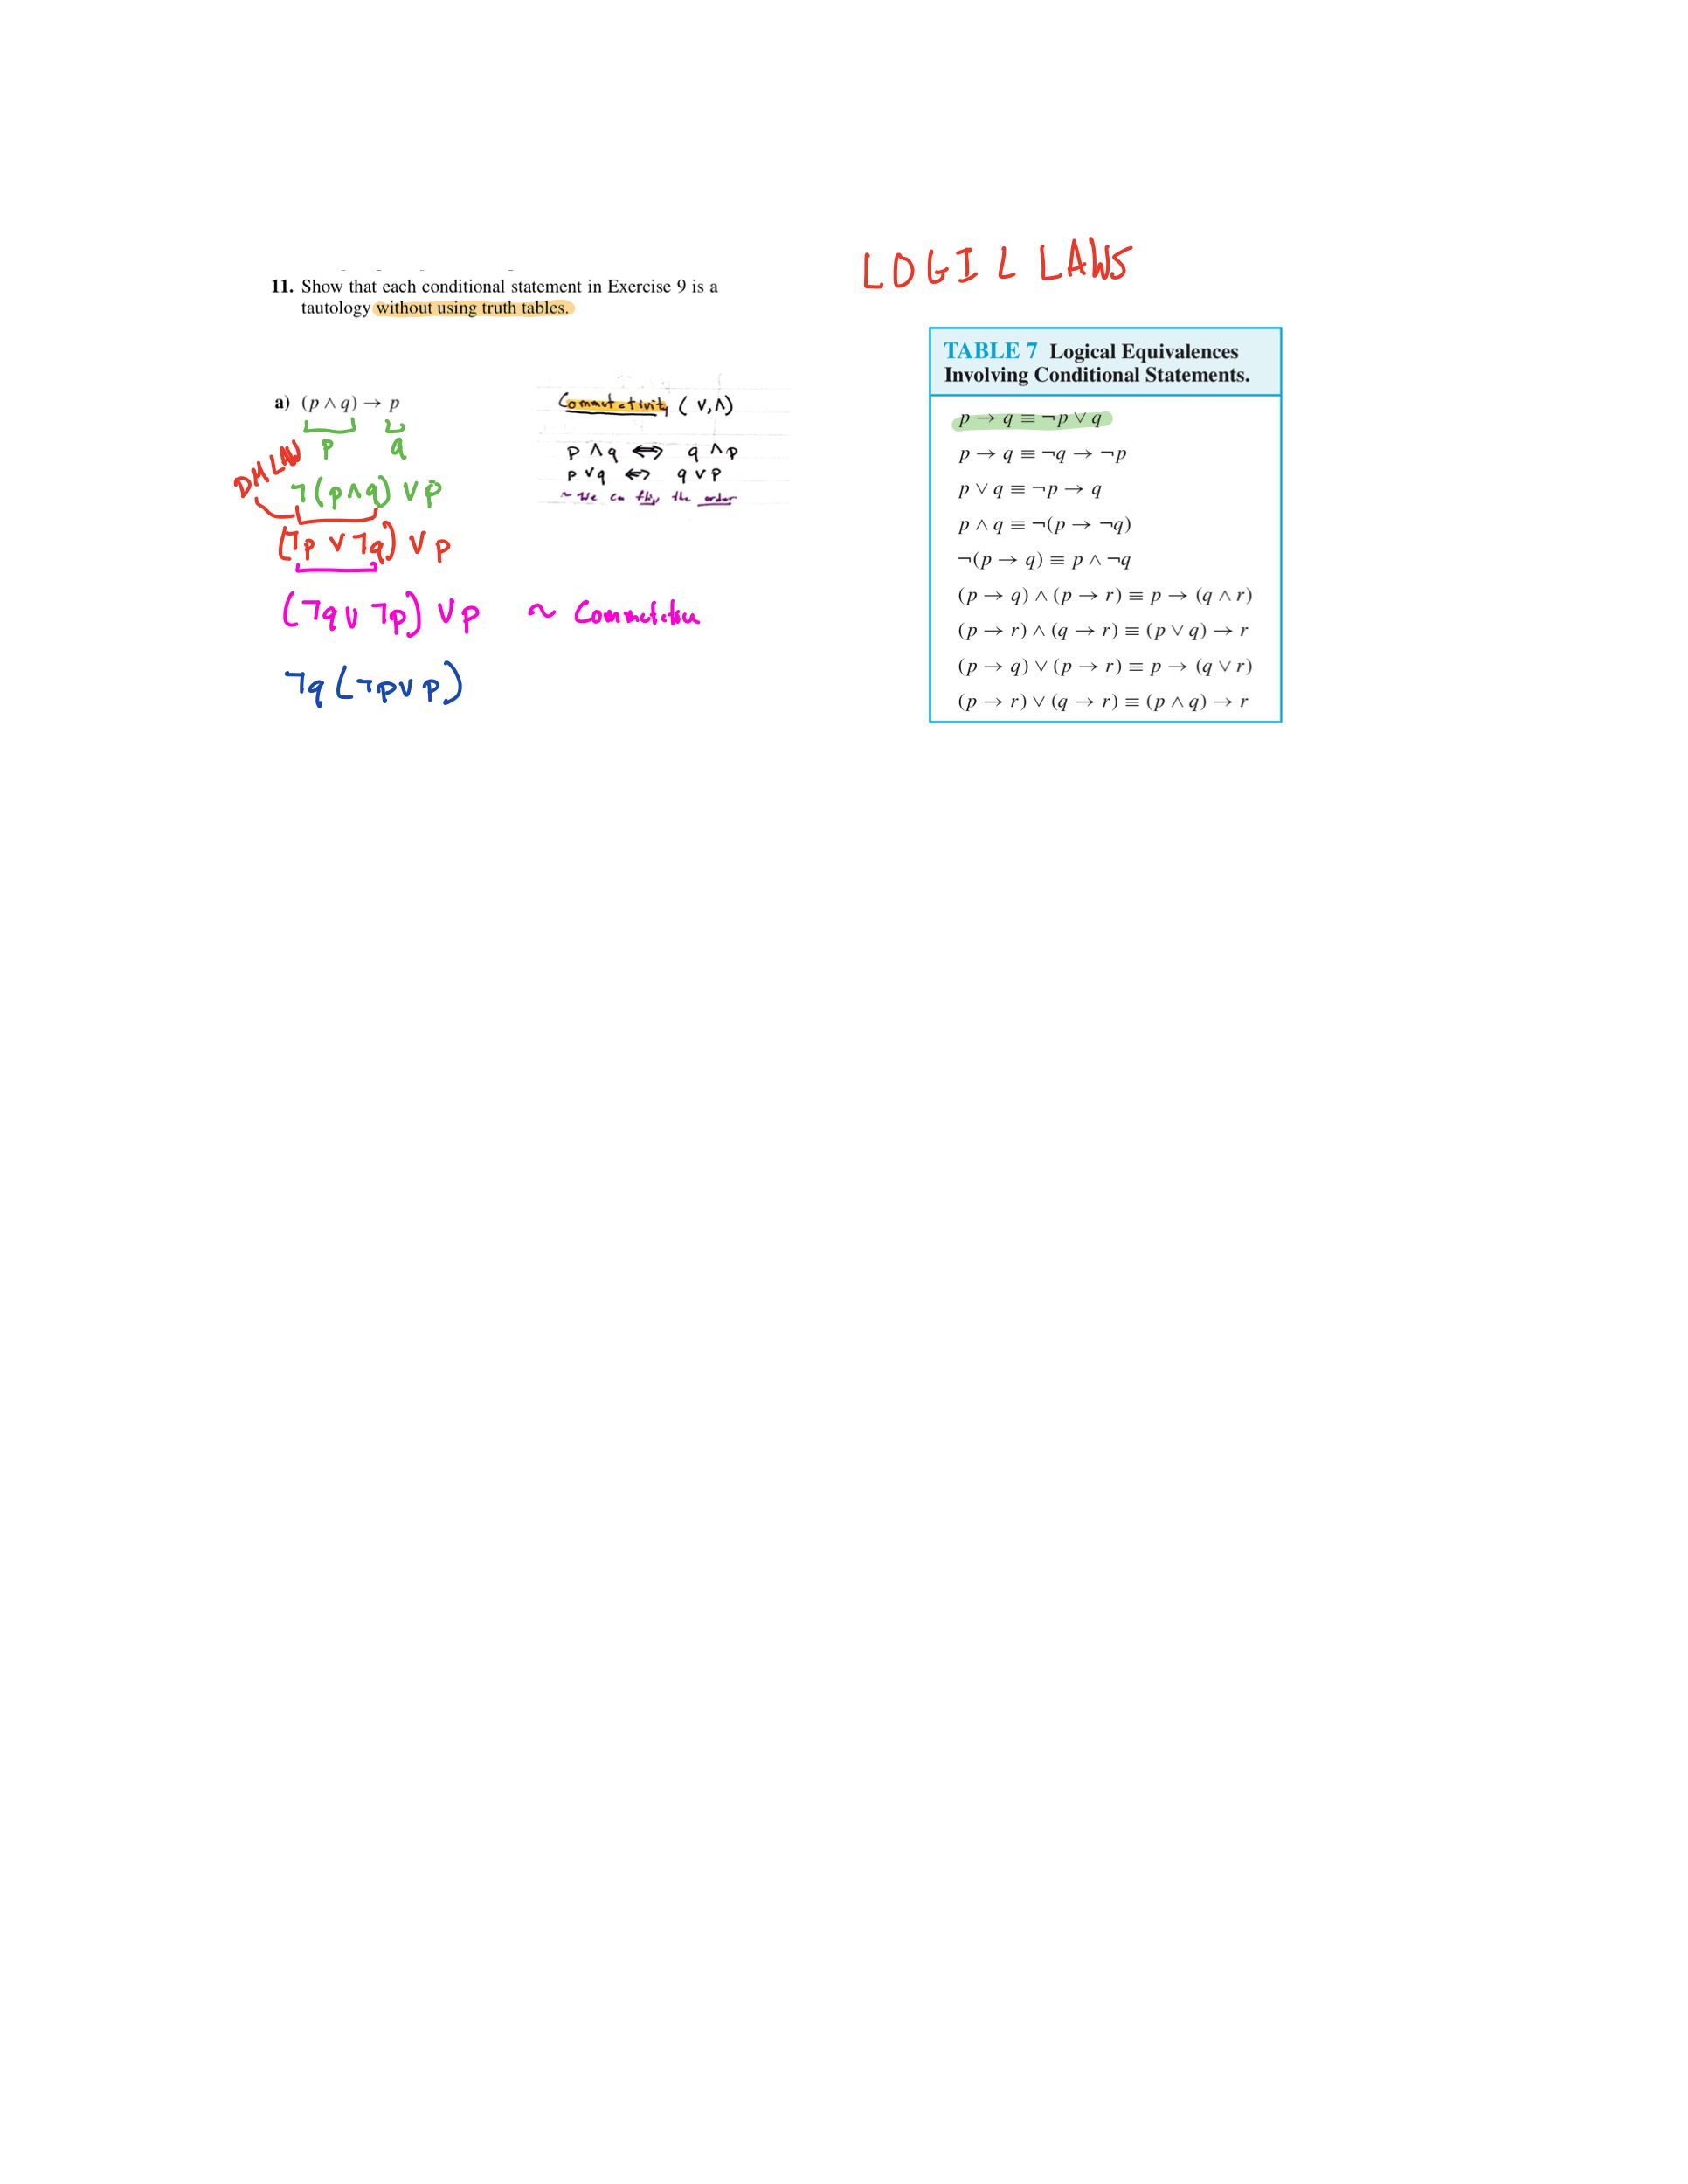 LOGIC LAWS
11. Show that each conditional statement in Exercise 9 is a
tautology without using truth tables.
a) (p ∧ q) → p
p q
DM LAW
¬(p∧q) ∨ p
(¬p ∨ ¬q) ∨ p
(¬q ∨ ¬p) ∨ p ~
¬q (¬p ∨ p)
Commutativity (∨, ∧)
p ∧ q ⟺ q ∧ p
p ∨ q ⟺ q ∨ p
~ We can flip the order
TABLE 7 Logical Equivalences
Involving Conditional Statements.
p → q ≡ ¬p ∨ q
p → q ≡ ¬q → ¬p
p ∨ q ≡ ¬p → q
p ∧ q ≡ ¬(p → ¬q)
¬(p → q) ≡ p ∧ ¬q
(p → q) ∧ (p → r) ≡ p → (q ∧ r)
(p → r) ∧ (q → r) ≡ (p ∨ q) → r
(p → q) ∨ (p → r) ≡ p → (q ∨ r)
(p → r) ∨ (q → r) ≡ (p ∧ q) → r